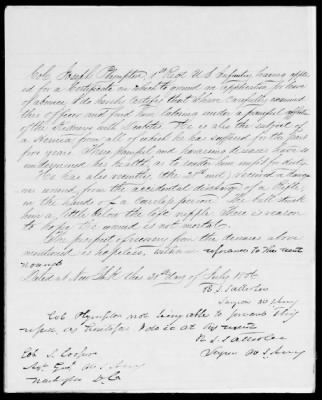 Col. Joseph Plympton, 1st Regt U S Infantry, having appli-
ed for a Certificate on which to ground an application for leave
of absence, I do hereby certify that I have carefully examined
this officer and find him laboring under a painful
of the and He is also the subject of
a Hernia from all of which he has suffered for the past
five years. These painful and harassing diseases have so
undermined his health, as to render him unfit for duty.
He has also recently, (the 21st inst) received a danger-
ous wound, from the accidental discharge of a Rifle,
in the hands of a careless person. The ball struck
him a little below the left nipple. There is reason
to hope the wound is not mortal.
The prospect of recovery from the diseases above
mentioned is hopeless, without reference to the
wound.
Dated at New this Day of July
R. S. Satterlee
Surgeon U S Army
Col Plympton not being able to forward this
I do so at his request
R S Satterlee
Surgeon U. S. Army
Col. S. Cooper
Adjt Genl U. S. Army
D. C.